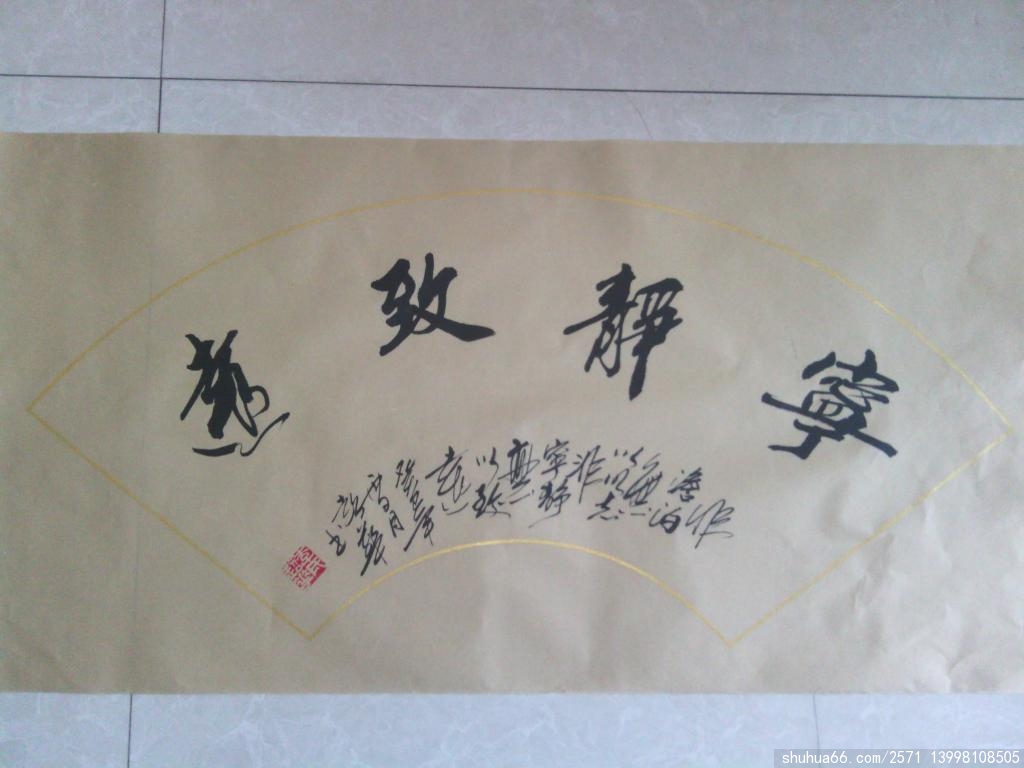 寧靜致遠
非
澹泊
無
以明志
非
寧静
無
以致
遠
癸巳年
shuhua66.com/2571 13998108505